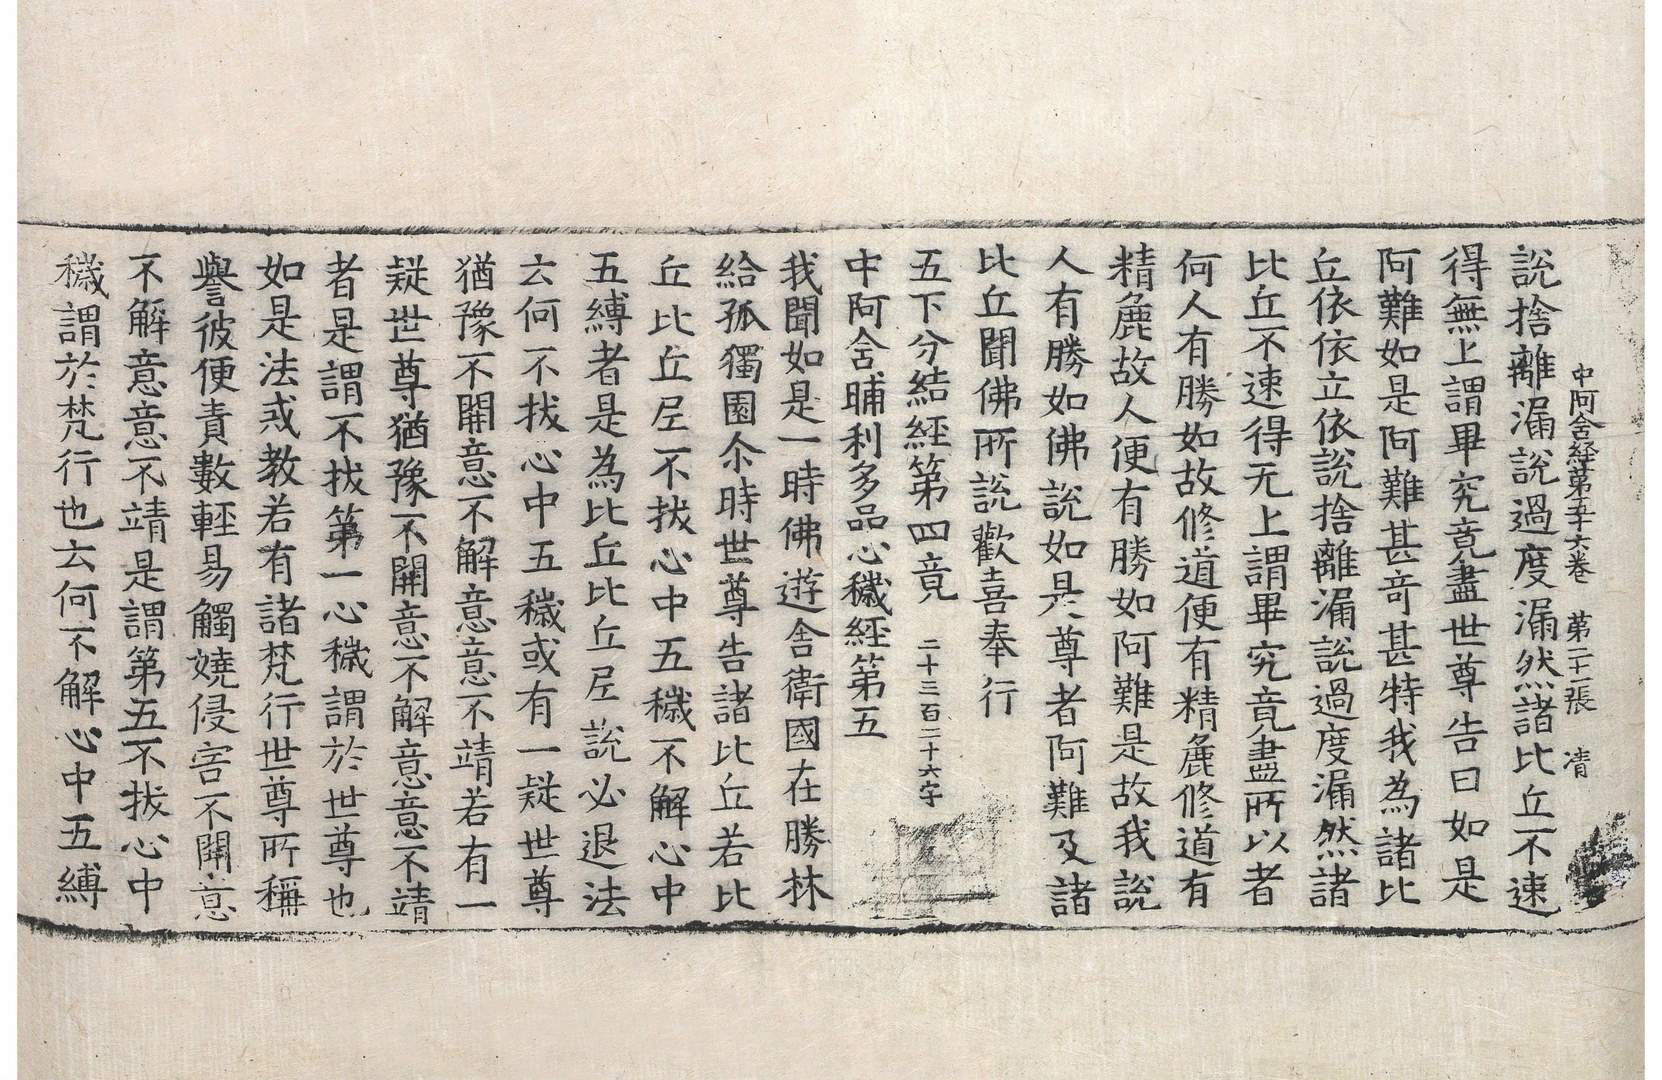 中阿含経第五十六卷　第二十一張　清
說捨離漏說過度漏然諸比丘不速
得無上謂畢究竟盡世尊告曰如是
阿難如是阿難甚奇甚特我為諸比
丘依依立依說捨離漏說過度漏然諸
比丘不速得无上謂畢究竟盡所以者
何人有勝如故修道便有精麁修道有
精麁故人便有勝如阿難是故我說
人有勝如佛說如是尊者阿難及諸
比丘聞佛所說歡喜奉行
五下分結經第四竟　二千三百二十六字
中阿含晡利多品心穢經第五
我聞如是一時佛遊舍衛國在勝林
給孤獨園尒時世尊告諸比丘若比
丘比丘尼不拔心中五穢不解心中
五縛者是為比丘比丘尼說必退法
云何不拔心中五穢或有一疑世尊
猶豫不開意不解意意不靖若有一
疑世尊猶豫不開意不解意意不靖
者是謂不拔第一心穢謂於世尊也
如是法戒教若有諸梵行世尊所稱
譽彼便責數輕易觸嬈侵害不開意
不解意意不靖是謂第五不拔心中
穢謂於梵行也云何不解心中五縛